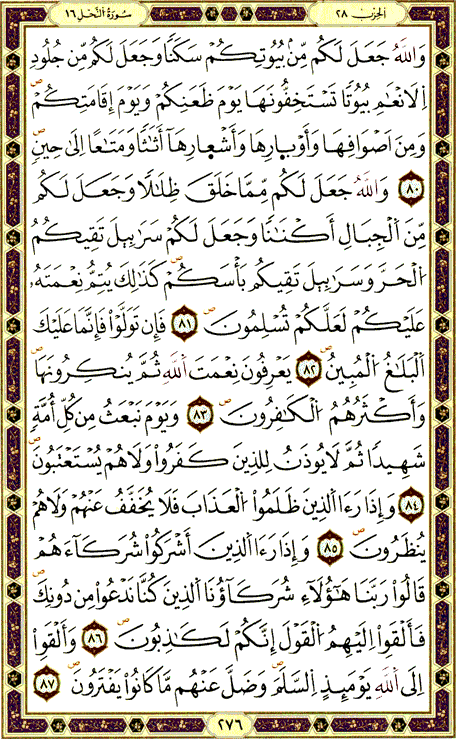 سُورَةُ النَّحْلِ ١٦
الحِزْب ٢٨
وَاللَّهُ جَعَلَ لَكُم مِّنۢ بُيُوتِكُمْ سَكَنًا وَجَعَلَ لَكُم مِّن جُلُودِ
اِ۬لَانْعَٰمِ بُيُوتًا تَسْتَخِفُّونَهَا يَوْمَ ظَعَنِكُمْ وَيَوْمَ إِقَامَتِكُمْ ص
وَمِنَ اَصْوَافِهَا وَأَوْبارِهَا وَأَشْعارِهَا أَثَٰثًا وَمَتَٰعًا اِلَىٰ حِينٍ ص
٨٠ وَاللَّهُ جَعَلَ لَكُم مِّمَّا خَلَقَ ظِلَٰلًا وَجَعَلَ لَكُم
مِّنَ اَ۬لْجِبَالِ أَكْنَٰنًا وَجَعَلَ لَكُمْ سَرَٰبِيلَ تَقِيكُمُ
اُ۬لْحَرَّ وَسَرَٰبِيلَ تَقِيكُم بَأْسَكُمْ ص كَذَٰلِكَ يُتِمُّ نِعْمَتَهُۥ
عَلَيْكُمْ لَعَلَّكُمْ تُسْلِمُونَ ص ٨١ فَإِن تَوَلَّوْاْ فَإِنَّمَا عَلَيْكَ
اَ۬لْبَلَٰغُ اُ۬لْمُبِينُ ص ٨٢ يَعْرِفُونَ نِعْمَتَ اَ۬للَّهِ ثُمَّ يُنكِرُونَهَا ص
وَأَكْثَرُهُمُ اُ۬لْكَٰفِرُونَ ص ٨٣ وَيَوْمَ نَبْعَثُ مِن كُلِّ أُمَّةٍ
شَهِيدًا ثُمَّ لَا يُوذَنُ لِلذِينَ كَفَرُواْ وَلَا هُمْ يُسْتَعْتَبُونَ ص
٨٤ وَإِذَا رَءَا اَ۬لذِينَ ظَلَمُواْ اُ۬لْعَذَابَ فَلَا يُخَفَّفُ عَنْهُمْ وَلَا هُمْ
يُنظَرُونَ ص ٨٥ وَإِذَا رَءَا اَ۬لذِينَ أَشْرَكُواْ شُرَكَآءَهُمْ
قَالُواْ رَبَّنَا هَٰٓؤُلَآءِ شُرَكَآؤُنَا اَ۬لذِينَ كُنَّا نَدْعُواْ مِن دُونِكَ ص
فَأَلْقَوِاْ اِلَيْهِمُ اُ۬لْقَوْلَ إِنَّكُمْ لَكَٰذِبُونَ ص ٨٦ وَأَلْقَوِاْ
اِلَى اَ۬للَّهِ يَوْمَئِذٍ اِ۬لسَّلَمَ ص وَضَلَّ عَنْهُم مَّا كَانُواْ يَفْتَرُونَ ص ٨٧
٢٧٦